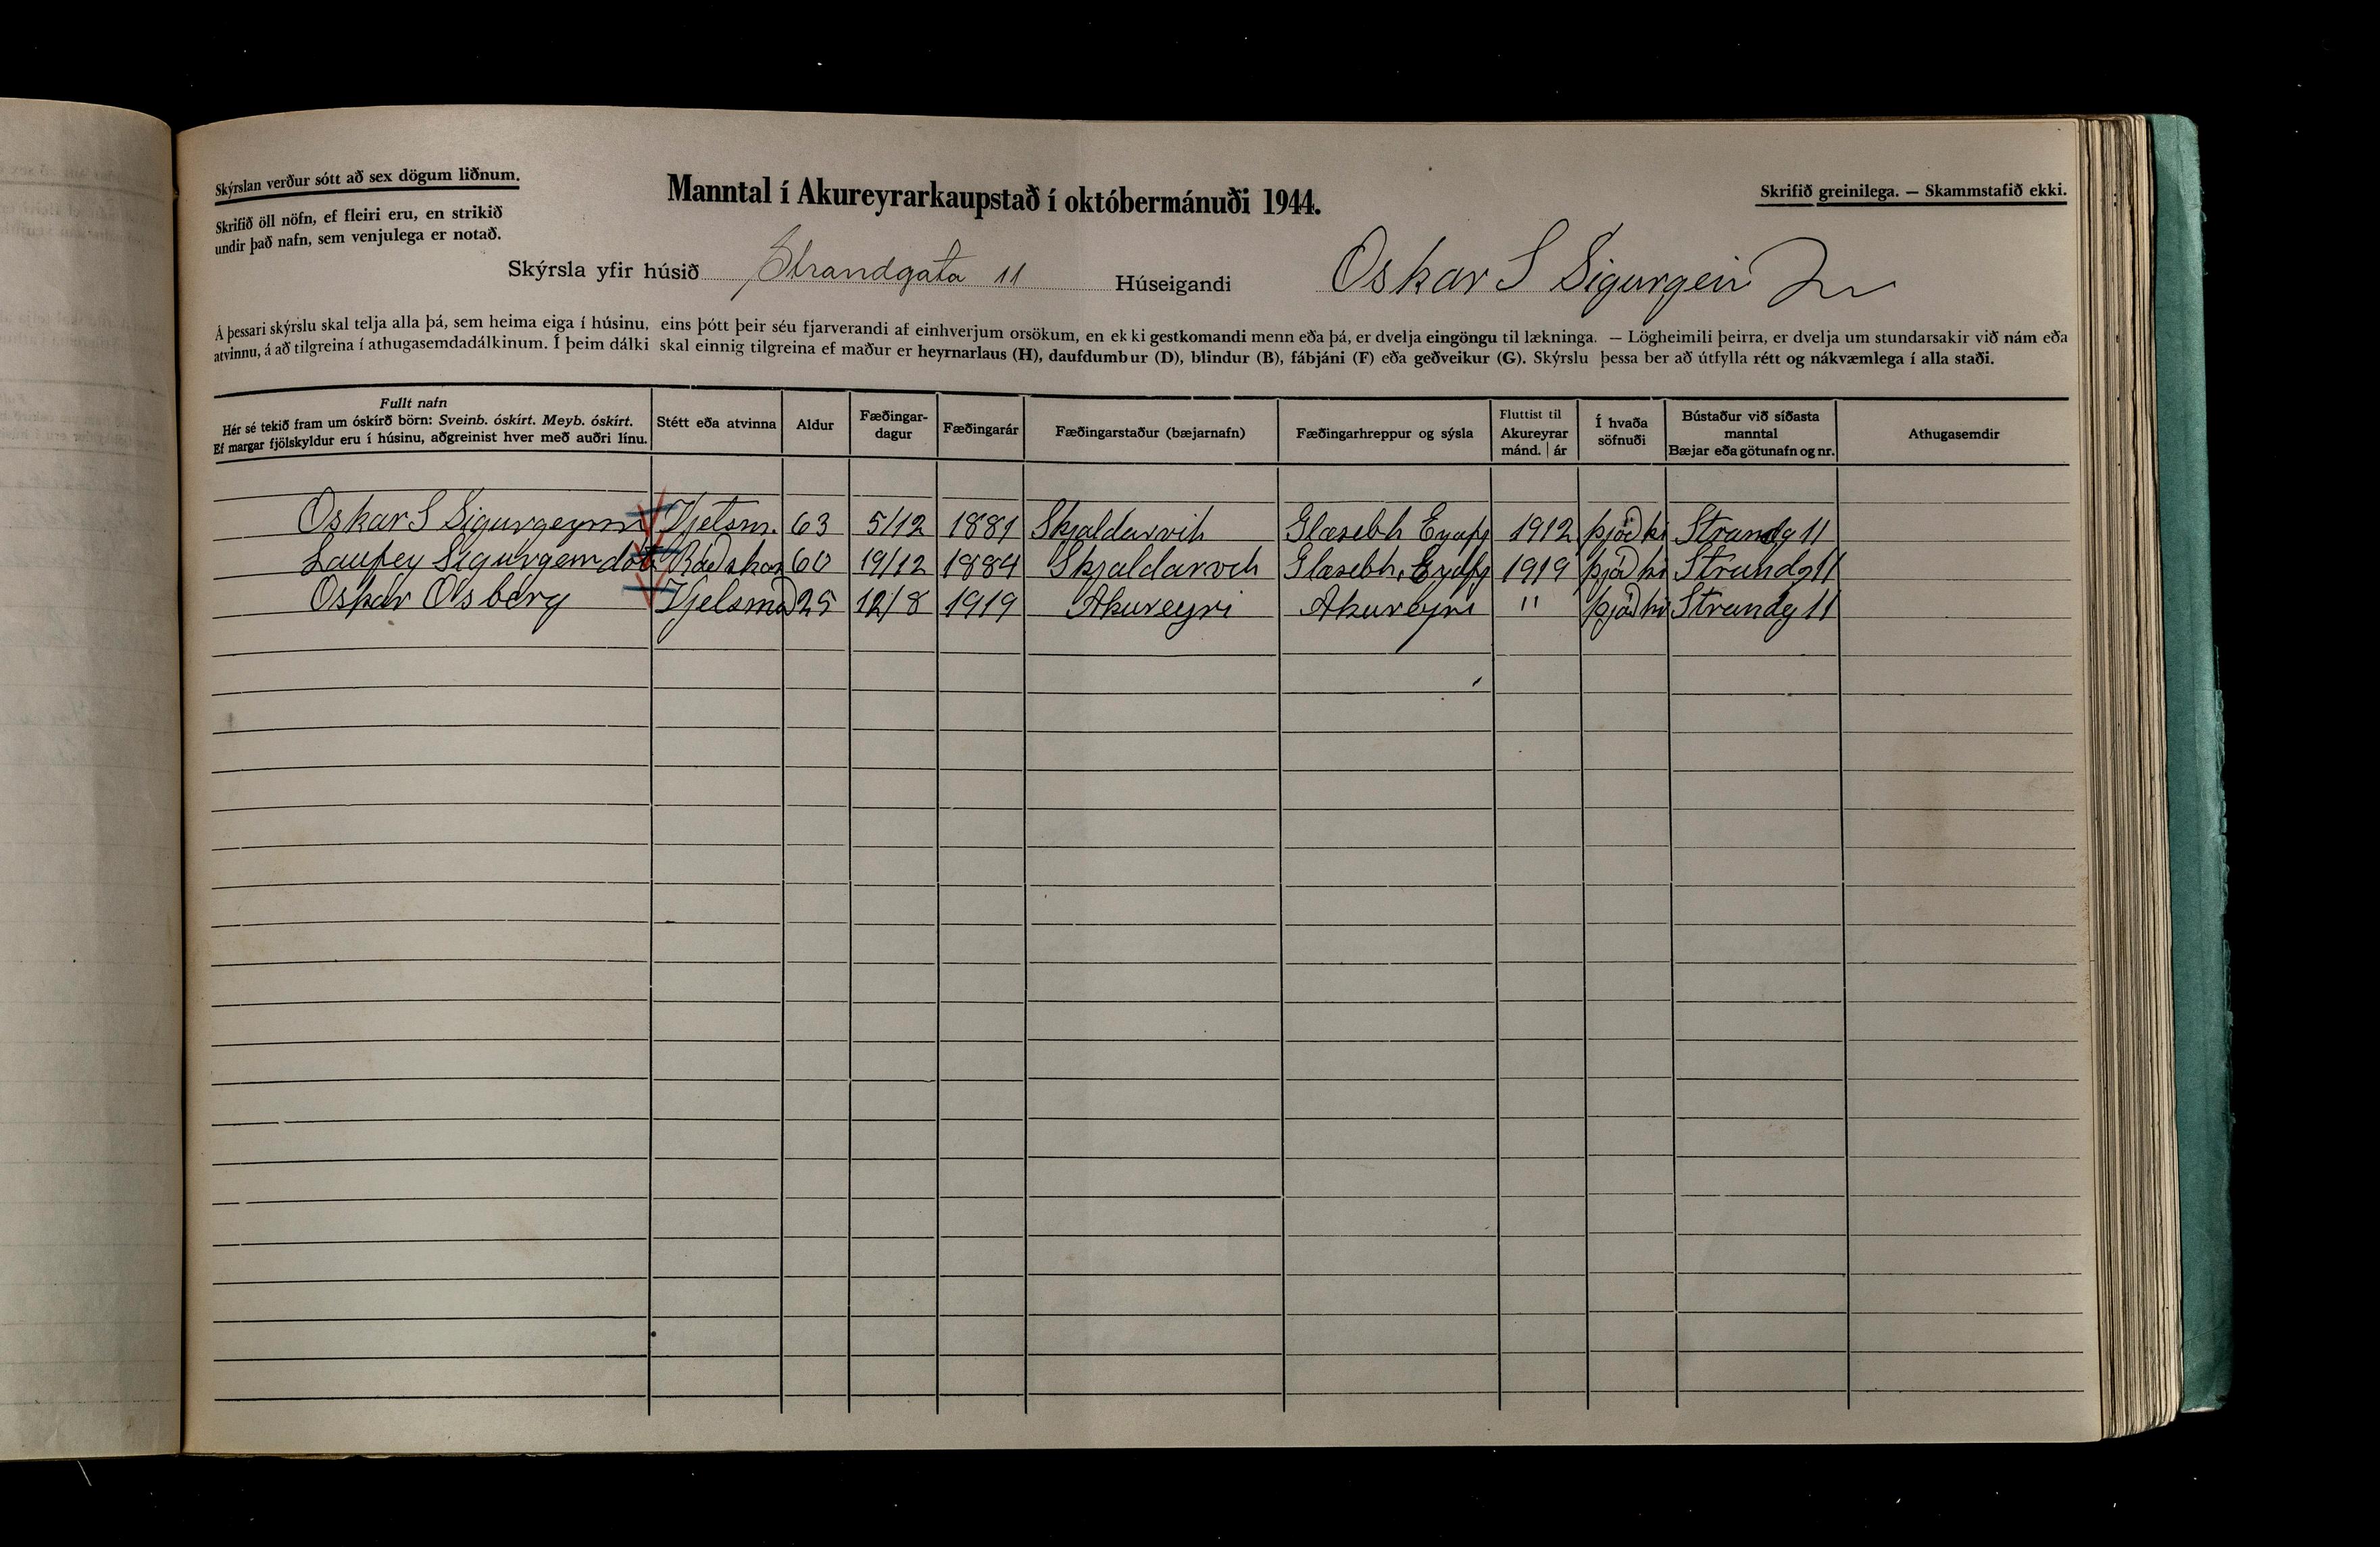 Skýrslan verður sótt að sex dögum liðnum.
Skrifið öll nöfn, ef fleiri eru, en strikið
undir það nafn, sem venjulega er notað.
Manntal í Akureyrarkaupstað í októbermánuði 1944.
Skrifið greinilega. — Skammstafið ekki.
Skýrsla yfir húsið Strandgata 11 Húseigandi Oskar S Sigurgeir
Á þessari skýrslu skal telja alla þá, sem heima eiga í húsinu, eins þótt þeir séu fjarverandi af einhverjum orsökum, en ekki gestkomandi menn eða þá, er dvelja eingöngu til lækninga. — Lögheimili þeirra, er dvelja um stundarsakir við nám eða
atvinnu, á að tilgreina í athugasemdadálkinum. Í þeim dálki skal einnig tilgreina ef maður er heyrnarlaus (H), daufdumbur (D), blindur (B), fábjáni (F) eða geðveikur (G). Skýrslu þessa ber að útfylla rétt og nákvæmlega í alla staði.
Fullt nafn
Hér sé tekið fram um óskírð börn: Sveinb. óskírt. Meyb. óskírt.
Ef margar fjölskyldur eru í húsinu, aðgreinist hver með auðri línu.
Stétt eða atvinna
Aldur
Fæðingar-
dagur
Fæðingarár
Fæðingarstaður (bæjarnafn)
Fæðingarhreppur og sýsla
Fluttist til
Akureyrar
mánd. | ár
Í hvaða
söfnuði
Bústaður við síðasta
manntal
Bæjar eða götunafn og nr.
Athugasemdir
Oskar S Sigurgeirss Vjelsm. 63 5/12 1881 Skjaldarvik Glæsebh Eyafj 1912 þjóðki Strandg 11
Laufey Sigurgeirsdót Ráðskon 60 19/12 1884 Skjaldarvik Glæsebh. Eyafj 1919 þjóðki Strandg 11
Oskar Osberg Vjelsmið 25 12/8 1919 Akureyri Akureyri " þjóðki Strandg 11